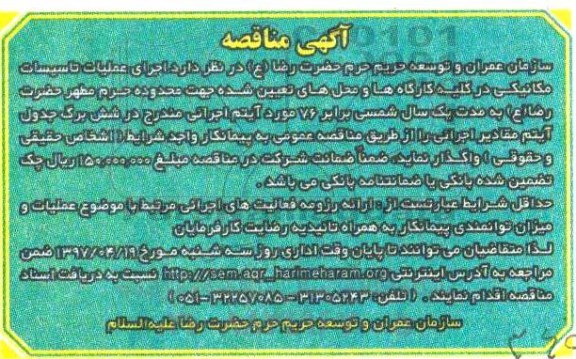 آگهی مناقصه
سازمان عمران و توسعه حریم حرم حضرت رضا (ع) در نظر دارد اجرای عملیات تاسیسات
مکانیکی در کلیه کارگاه ها و محل های تعیین شده جهت محدوده حرم مطهر حضرت
رضا(ع) به مدت یک سال شمسی برابر ۷۶ مورد آیتم اجرائی مندرج در شش برگ جدول
آیتم مقادیر اجرائی را از طریق مناقصه عمومی به پیمانکار واجد شرایط ( اشخاص حقیقی
و حقوقی ) واگذار نماید. ضمناً ضمانت شرکت در مناقصه مبلغ ۱۵۰,۰۰۰,۰۰۰ ریال چک
تضمین شده بانکی یا ضمانتنامه بانکی می باشد .
حداقل شرایط عبارتست از : ارائه رزومه فعالیت های اجرائی مرتبط با موضوع عملیات و
میزان توانمندی پیمانکار به همراه تائیدیه رضایت کارفرمایان
لـذا متقاضیان می توانند تا پایان وقت اداری روز سـه شنبـه مـورخ ۱۳۹۷/۰۴/۱۹ ضمن
مراجعه به آدرس اینترنتی http://sem.aqr_harimeharam.org نسبت به دریافت اسناد
مناقصه اقدام نمایند . ( تلفن: ۳۱۳۰۵۲۴۳ – ۳۲۲۵۷۰۸۵ –۰۵۱ )
سازمان عمران و توسعه حریم حرم حضرت رضا علیه‌السلام